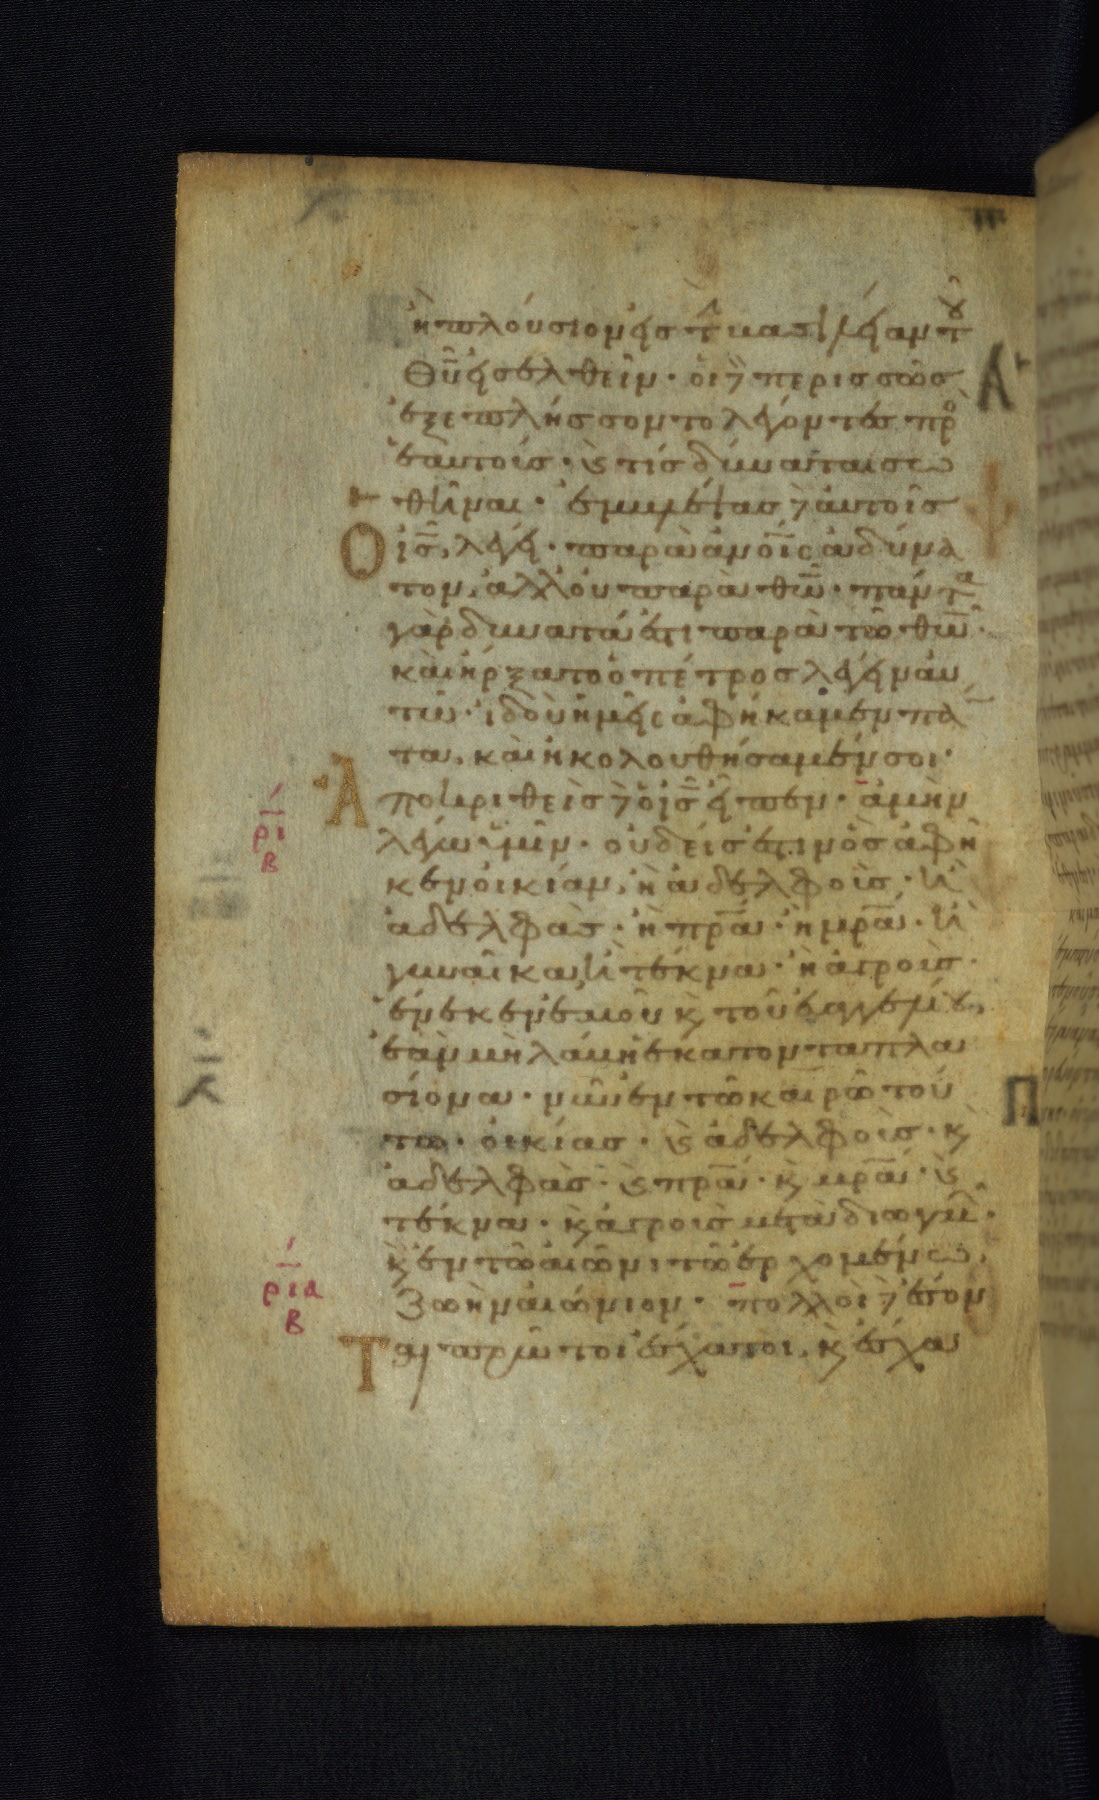 ἢ πλούσιον εἰς τὴν βασιλείαν τοῦ
θῡ εἰσελθεῖν· οἱ δὲ περισσῶς
ἐξεπλήσσοντο λέγοντες πρὸς
ἑαυτούς· καὶ τίς δύναται σω
θῆναι· ἐμβλέψας δὲ αὐτοῖς
Ὁ ις̄ λέγει· παρὰ ἀνοῖς ἀδύνα
τον, ἀλλ' οὐ παρὰ θω̄· πάντα
γὰρ δυνατά ἐστι παρὰ τῶ θω̄·
καὶ ἤρξατο ὁ πέτρος λέγειν αὐ
τῶ· ἰδοὺ ἡμεῖς ἀφήκαμεν πάν
τα, καὶ ἠκολουθήσαμέν σοι·
Ἀποκριθεὶς δὲ ὁ ις̄ εἶπεν· ἀμὴν
ρι
β
λέγω ὑμῖν· οὐδείς ἐστιν ὃς ἀφῆ
κεν οἰκίαν, ἢ ἀδελφοὺς· ἢ
ἀδελφὰς· ἢ πρᾱ· ἢ μρᾱ· ἢ
γυναῖκα, ἢ τέκνα· ἢ ἀγροὺς·
ἕνεκεν ἐμοῦ καὶ τοῦ εὐαγγελίου,
ἐὰν μὴ λάβη ἑκατονταπλα
σίονα· νῦν ἐν τῶ καιρῶ τού
τω· οἰκίας· καὶ ἀδελφοὺς· καὶ
ἀδελφὰς· καὶ πρᾱ· καὶ μρᾱ· καὶ
τέκνα· καὶ ἀγροὺς μετὰ διωγμῶν·
καὶ ἐν τῶ αἰῶνι τῶ ἐρχομένω,
ζωὴν αἰώνιον· πολλοὶ δὲ ἔσον
ρια
β
Ται πρῶτοι ἔσχατοι, καὶ ἔσχα